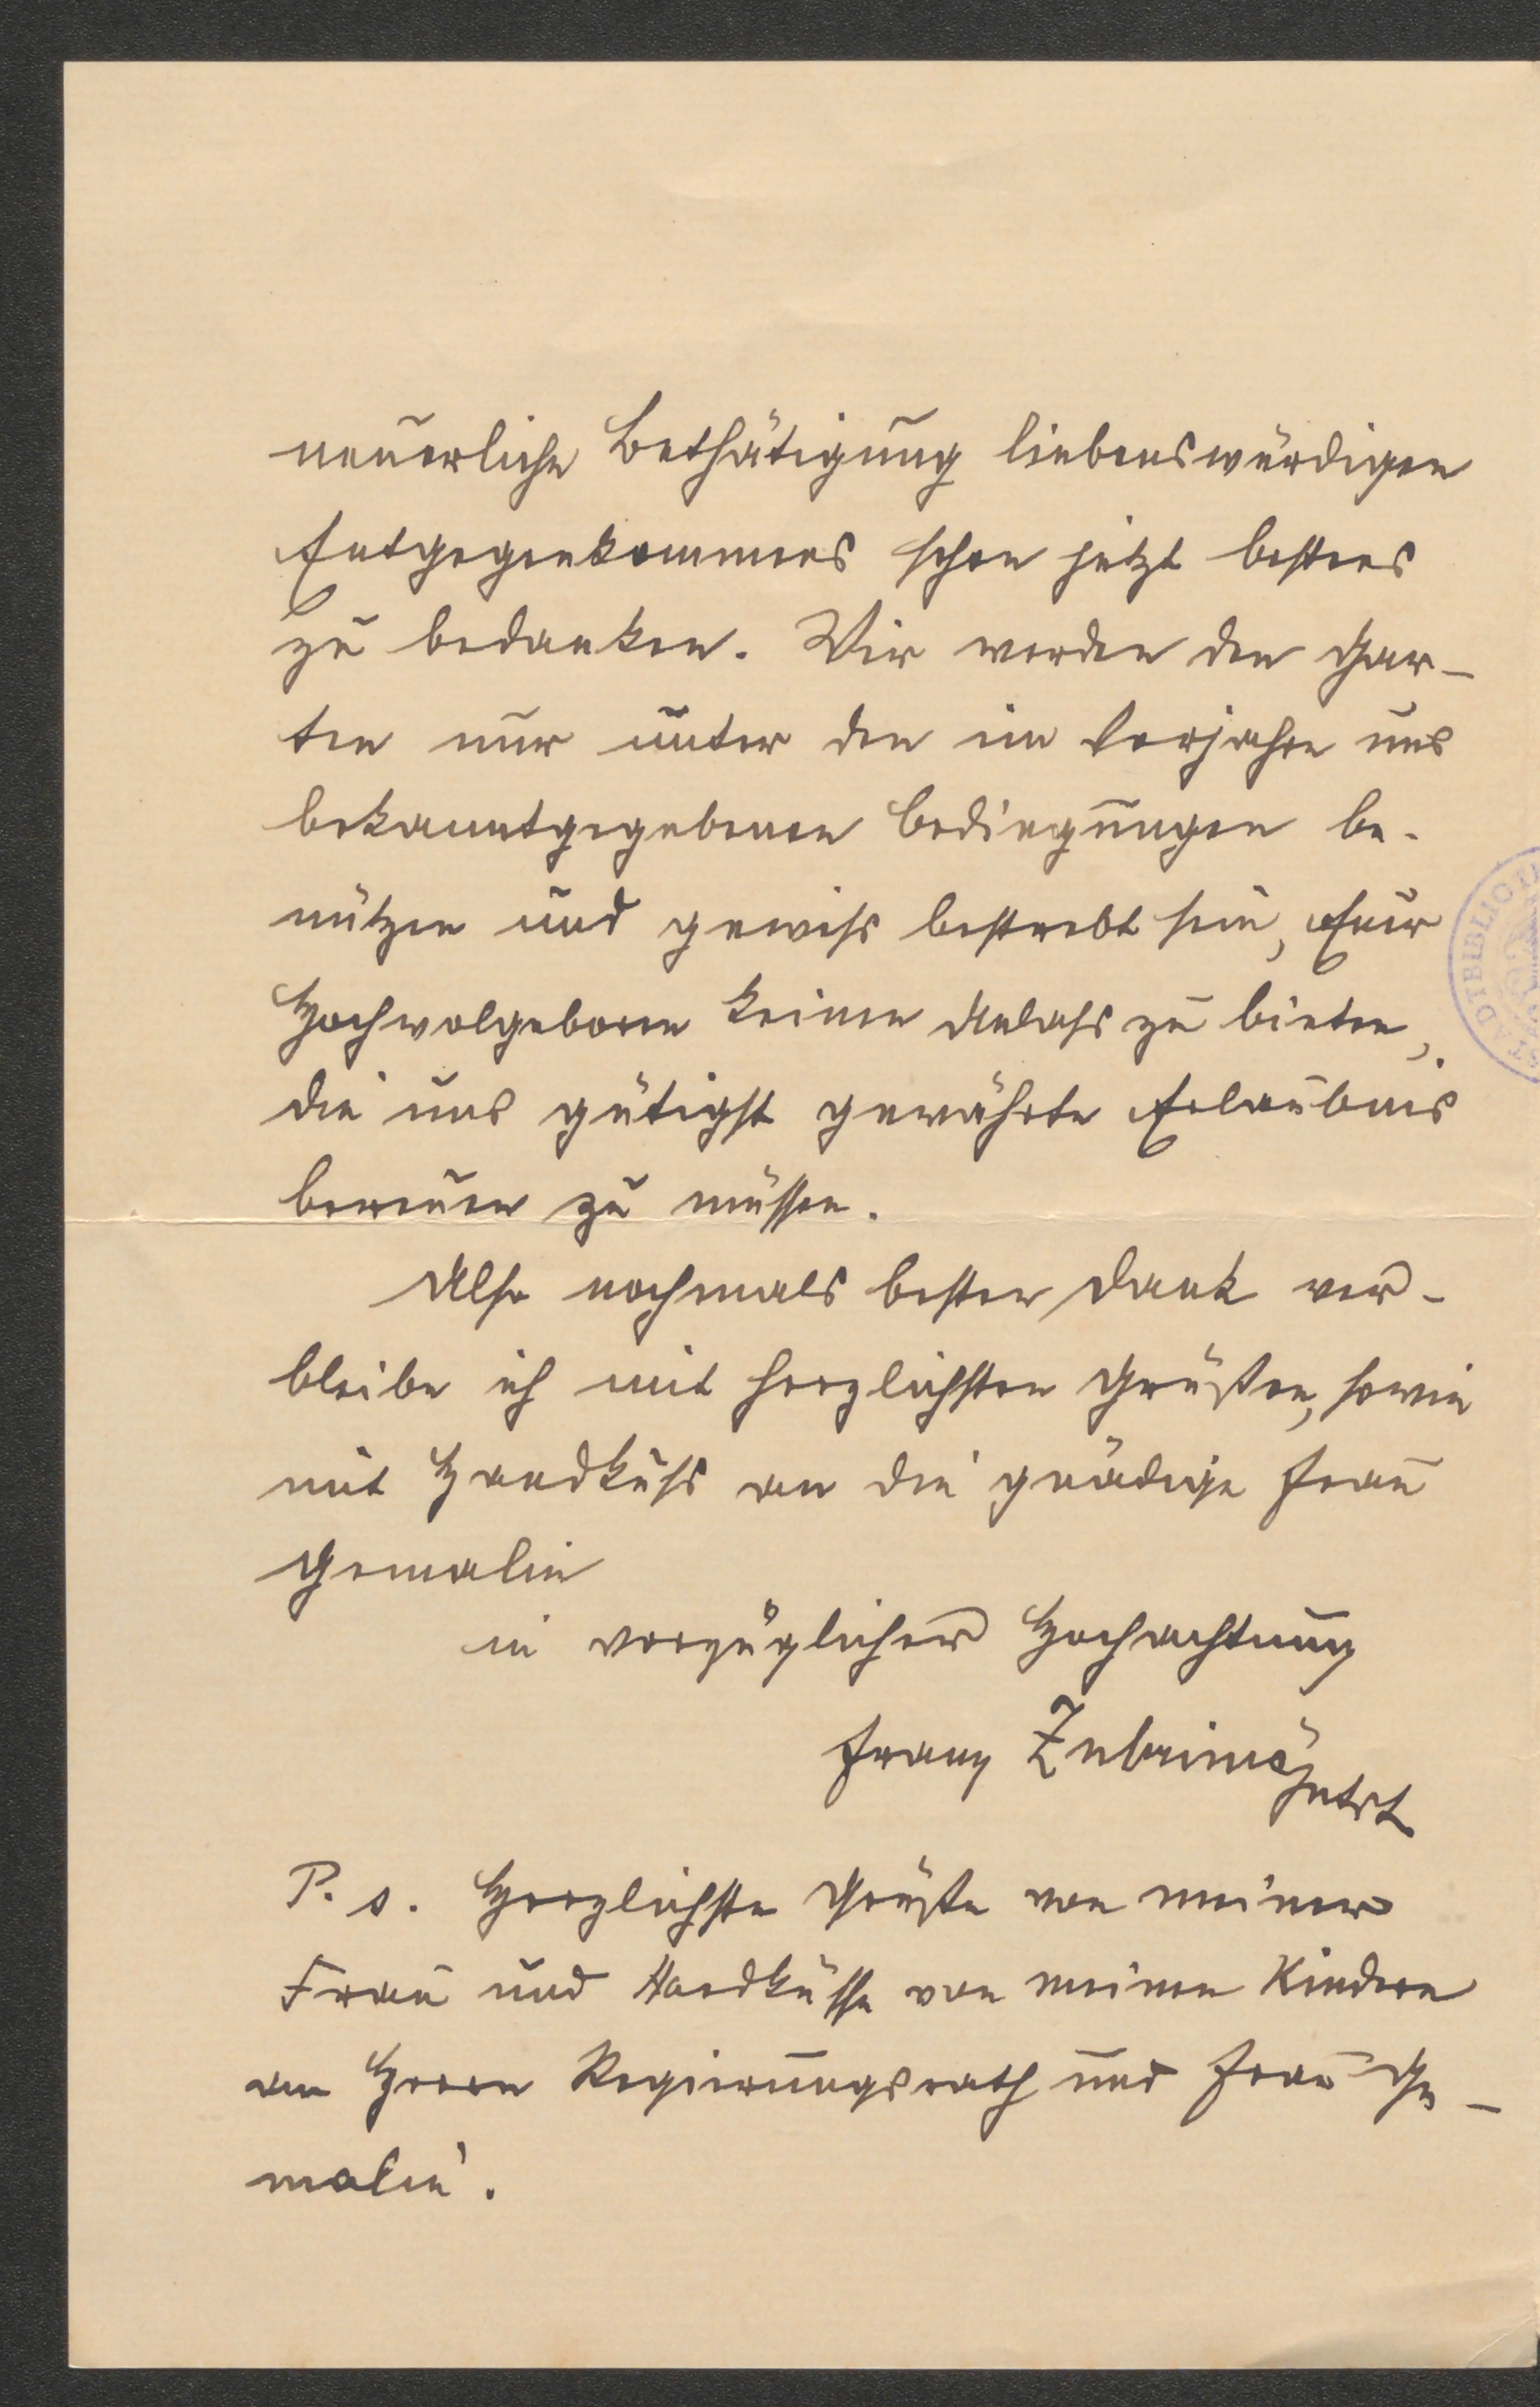 neuerliche Bethätigung liebenswürdigen
Entgegenkommens schon jetzt bestens
zu bedanken. Wir werden den Gar-
ten nur unter den im Vorjahre uns
bekanntgegebenen Bedingungen be-
nützen und gewiss bestrebt sein, Euer
Hochwolgeboren keinen Anlass zu bieten,
die uns gütigst gewährte Erlaubnis
bereuen zu müssen.
Also nochmals bester Dank ver-
bleibe ich mit herzlichsten Grüßen, sowie
mit Handkuss an die gnädige Frau
Gemalin
in vorzüglicher Hochachtung
Franz
P. s. Herzlichste Grüße von meiner
Frau und Handküsse von meinen Kindern
an Herrn Regierungsrath und Frau Ge-
malin.
STADTBIBLIOT